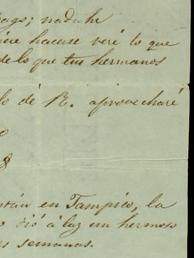 nada he
hacerse veré lo que
de lo que tus hermanos
lo de R. aprovecharé
están en Tampico, la
dió á luz un hermoso
semanas.